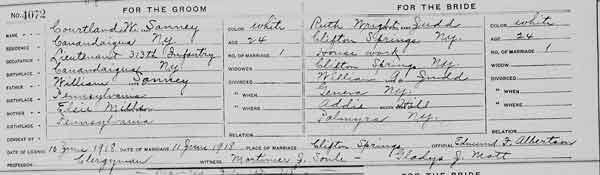 FOR THE GROOM FOR THE BRIDE
No. 4072
NAME Courtland W. Sanney COLOR White Ruth Wright Judd COLOR White
RESIDENCE Canandaigua Ny. AGE 24 Clifton Springs Ny. AGE 24
OCCUPATION Lieutenant 313th Infantry NO. OF MARRIAGE 1 House work NO. OF MARRIAGE 1
BIRTHPLACE Canandaigua Ny. WIDOWER Clifton Springs Ny. WIDOW
FATHER William Sanney DIVORCED William Judd DIVORCED
BIRTHPLACE Pennsylvania " WHEN Geneva Ny. " WHEN
MOTHER Elsie " WHERE Addie Hall " WHERE
BIRTHPLACE Pennsylvania Palmyra Ny.
CONSENT BY RELATION RELATION
DATE OF LICENSE 10 June 1918 DATE OF MARRIAGE 11 June 1918 PLACE OF MARRIAGE Clifton Springs OFFICIAL Edmund F. Albertson
PROFESSION Clergyman WITNESS Mortimer J. Soule - Gladys J. Mott